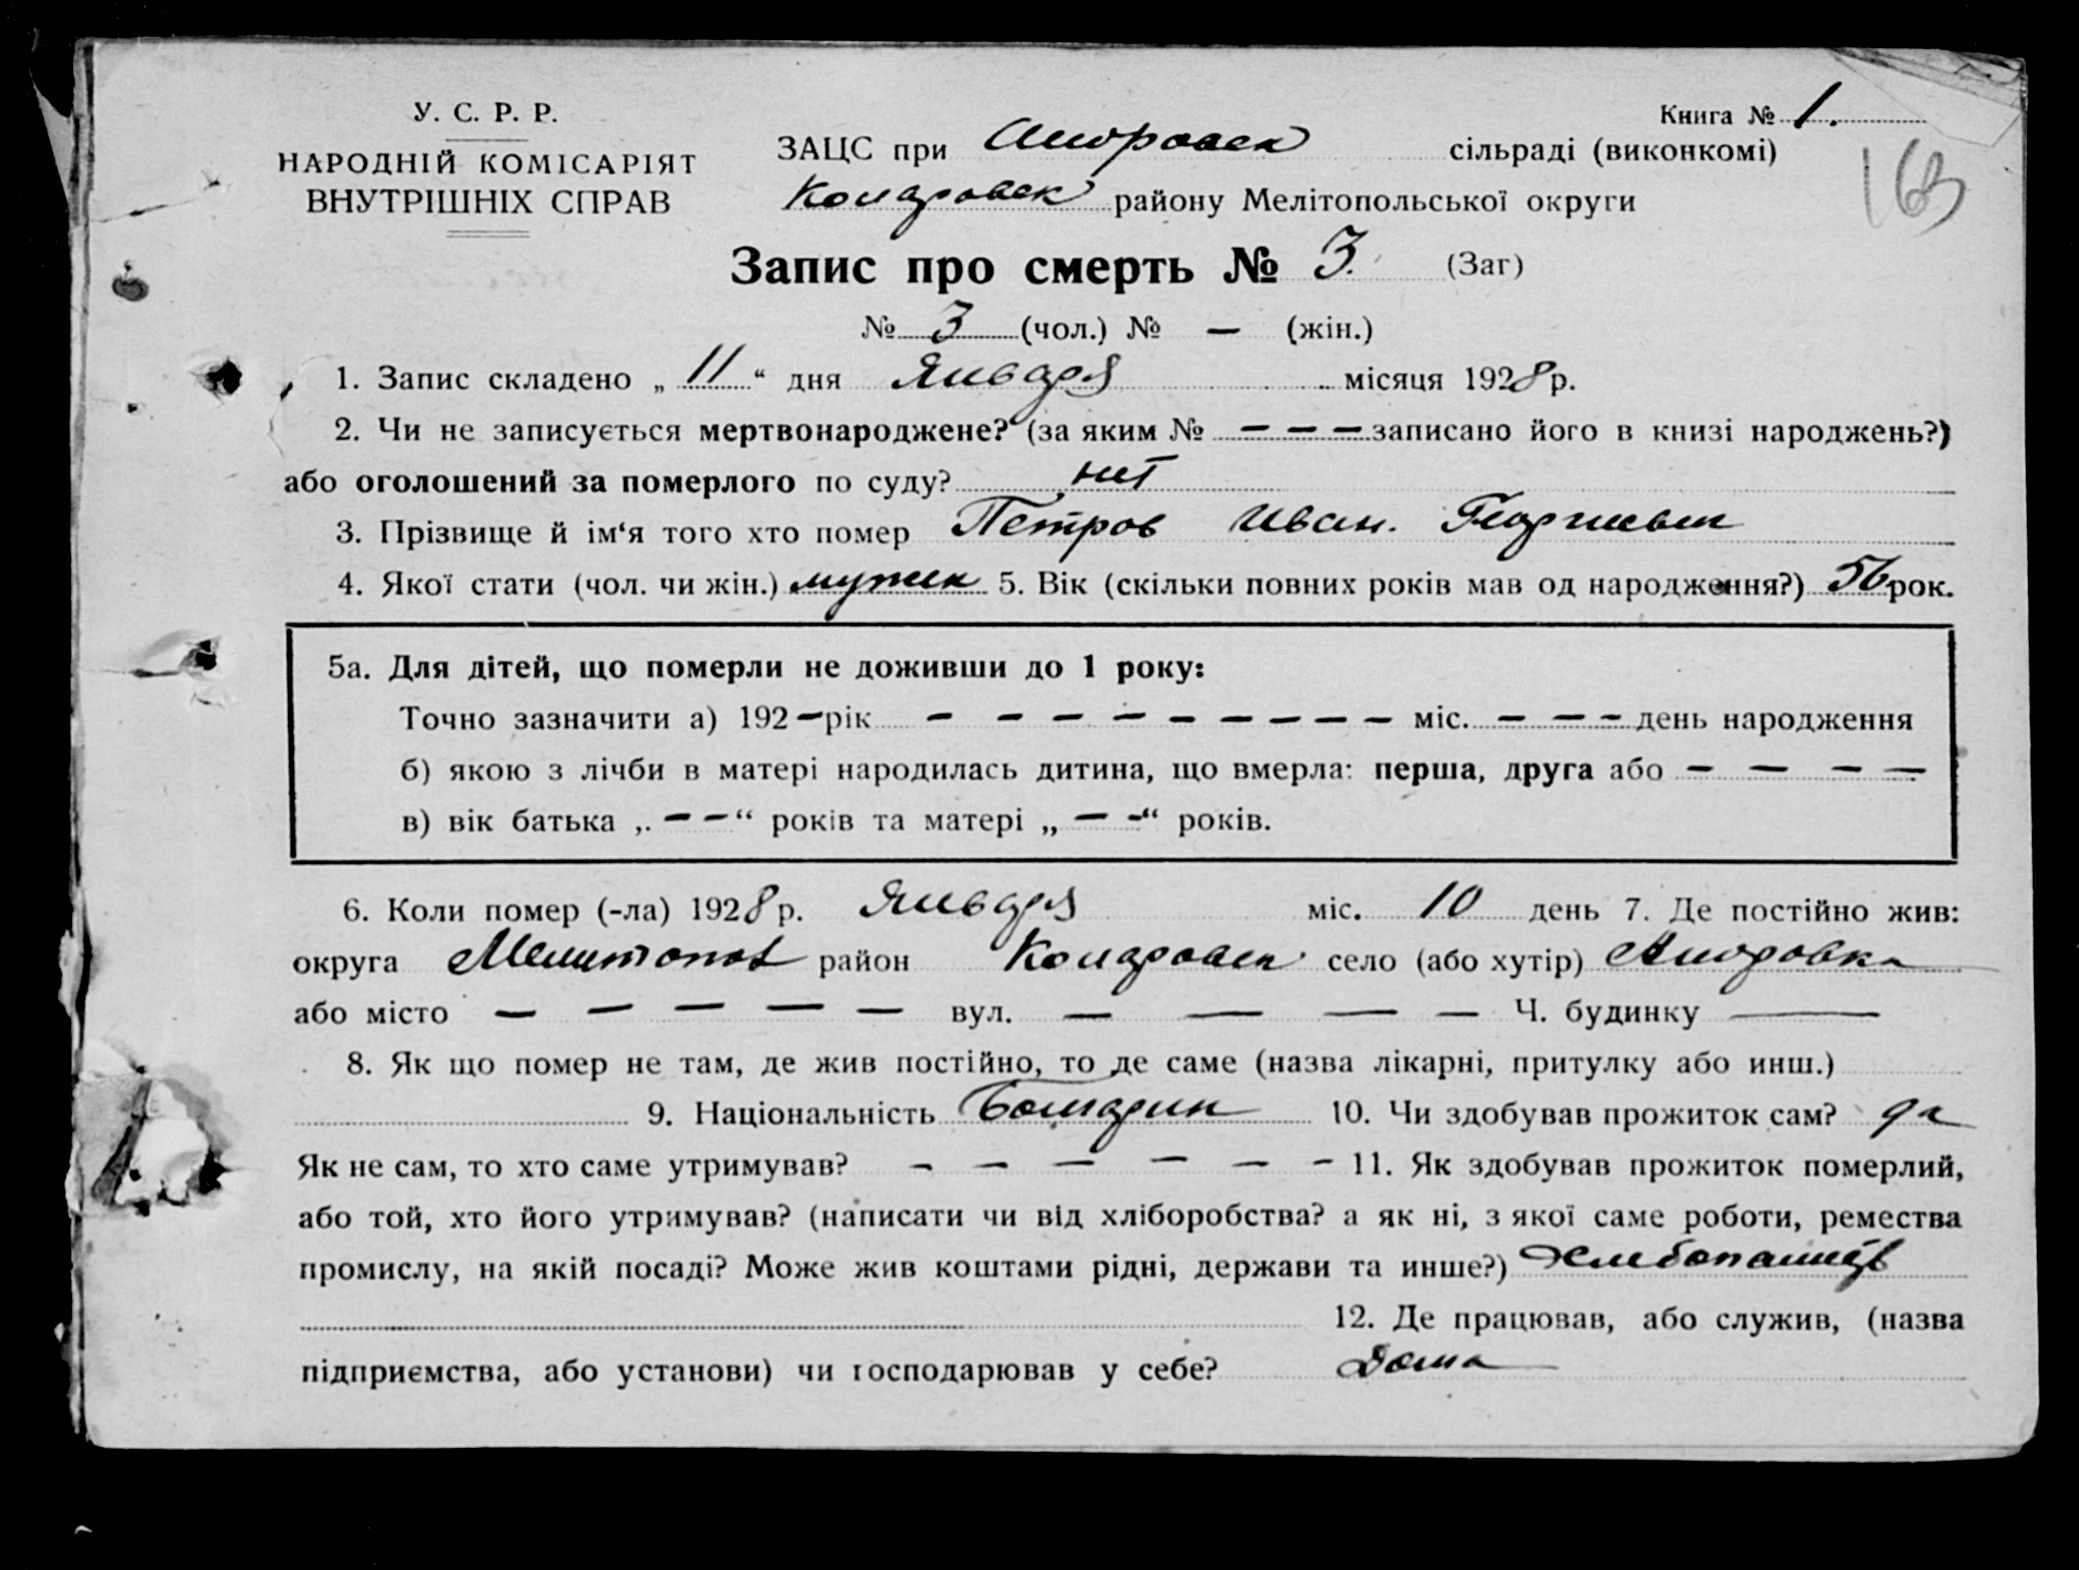 У. С. Р. Р.
НАРОДНІЙ КОМІСАРІЯТ
ВНУТРІШНІХ СПРАВ
Книга № 1.
163
ЗАЦС при сільраді (виконкомі)
району Мелітопольської округи
Запис про смерть № 3. (Заг)
№ 3 (чол.) № — (жін.)
1. Запис складено „ 11 “ дня Января місяця 1928 р.
2. Чи не записується мертвонароджене? (за яким № – – – записано його в книзі народжень?)
або оголошений за померлого по суду? нет
3. Прізвище й ім‘я того хто помер Петров Иван. Георгиевич
4. Якої стати (чол. чи жін.) мужск 5. Вік (скільки повних років мав од народження?) 56 рок.
5а. Для дітей, що померли не доживши до 1 року:
Точно зазначити а) 192 – рік – – – – – – – – – міс. – – – день народження
б) якою з лічби в матері народилась дитина, що вмерла: перша, друга або – – – –
в) вік батька „ – – “ років та матері „ – – “ років.
6. Коли помер (-ла) 1928 р. Января міс. 10 день 7. Де постійно жив:
округа Мелитопол район село (або хутір)
або місто – – – – – вул. — — — — Ч. будинку ——
8. Як що помер не там, де жив постійно, то де саме (назва лікарні, притулку або инш.)
9. Національність Болгарин 10. Чи здобував прожиток сам? да
Як не сам, то хто саме утримував? – – – – – – 11. Як здобував прожиток померлий,
або той, хто його утримував? (написати чи від хліборобства? а як ні, з якої саме роботи, ремества
промислу, на якій посаді? Може жив коштами рідні, держави та инше?)
12. Де працював, або служив, (назва
підприємства, або установи) чи господарював у себе? Дома